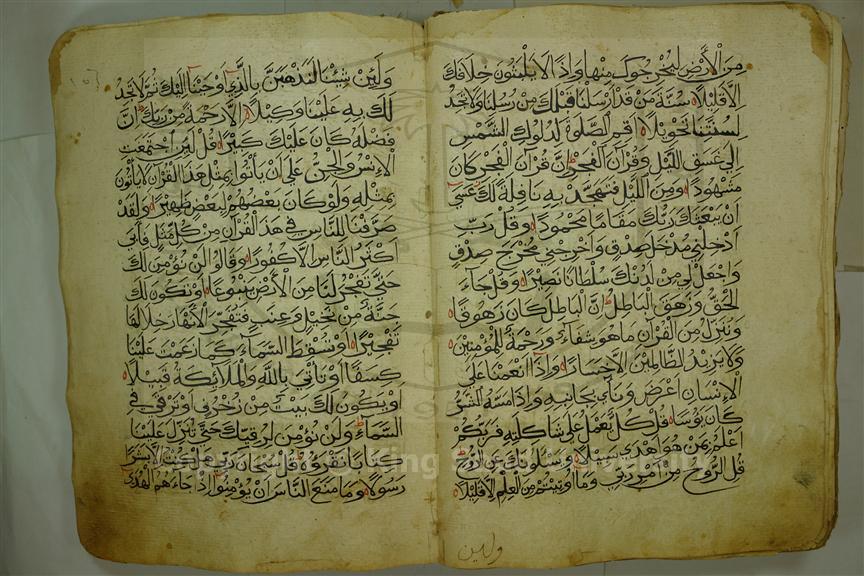 مِنَ الْأَرْضِ لِيُخْرِجُوكَ مِنْهَا وَإِذًا لَا يَلْبَثُونَ خِلَافَكَ
إِلَّا قَلِيلًا سُنَّةَ مَنْ قَدْ أَرْسَلْنَا قَبْلَكَ مِنْ رُسُلِنَا وَلَا تَجِدُ
لِسُنَّتِنَا تَحْوِيلًا أَقِمِ الصَّلَوةَ لِدُلُوكِ الشَّمْسِ
إِلَى غَسَقِ اللَّيْلِ وَقُرْآنَ الْفَجْرِ إِنَّ قُرْآنَ الْفَجْرِ كَانَ
مَشْهُودًا وَمِنَ اللَّيْلِ فَتَهَجَّدْ بِهِ نَافِلَةً لَكَ عَسَى
أَنْ يَبْعَثَكَ رَبُّكَ مَقَامًا مَحْمُودًا وَقُلْ رَبِّ
أَدْخِلْنِي مُدْخَلَ صِدْقٍ وَأَخْرِجْنِي مُخْرَجَ صِدْقٍ
وَاجْعَلْ لِي مِنْ لَدُنْكَ سُلْطَانًا نَصِيرًا وَقُلْ جَاءَ
الْحَقُّ وَزَهَقَ الْبَاطِلُ إِنَّ الْبَاطِلَ كَانَ زَهُوقًا
وَنُنَزِّلُ مِنَ الْقُرْآنِ مَا هُوَ شِفَاءٌ وَرَحْمَةٌ لِلْمُؤْمِنِينَ
وَلَا يَزِيدُ الظَّالِمِينَ إِلَّا خَسَارًا وَإِذَا أَنْعَمْنَا عَلَى
الْإِنْسَانِ أَعْرَضَ وَنَأَى بِجَانِبِهِ وَإِذَا مَسَّهُ الشَّرُّ
كَانَ يَؤُسًا قُلْ كُلٌّ يَعْمَلُ عَلَى شَاكِلَتِهِ فَرَبُّكُمْ
أَعْلَمُ بِمَنْ هُوَ أَهْدَى سَبِيلًا وَيَسْئَلُونَكَ عَنِ الرُّوحِ
قُلِ الرُّوحُ مِنْ أَمْرِ رَبِّي وَمَا أُوتِيتُمْ مِنَ الْعِلْمِ إِلَّا قَلِيلًا
ولئن
وَلَئِنْ شِئْنَا لَنَذْهَبَنَّ بِالَّذِي أَوْحَيْنَا إِلَيْكَ ثُمَّ لَا تَجِدُ
لَكَ بِهِ عَلَيْنَا وَكِيلًا إِلَّا رَحْمَةً مِنْ رَبِّكَ إِنَّ
فَضْلَهُ كَانَ عَلَيْكَ كَبِيرًا قُلْ لَئِنِ اجْتَمَعَتِ
الْإِنْسُ وَالْجِنُّ عَلَى أَنْ يَأْتُوا بِمِثْلِ هَذَا الْقُرْآنِ لَا يَأْتُونَ
بِمِثْلِهِ وَلَوْ كَانَ بَعْضُهُمْ لِبَعْضٍ ظَهِيرًا وَلَقَدْ
صَرَّفْنَا لِلنَّاسِ فِي هَذَا الْقُرْآنِ مِنْ كُلِّ مَثَلٍ فَأَبَى
أَكْثَرُ النَّاسِ إِلَّا كُفُورًا وَقَالُوا لَنْ نُؤْمِنَ لَكَ
حَتَّى تَفْجُرَ لَنَا مِنَ الْأَرْضِ يَنْبُوعًا أَوْ تَكُونَ لَكَ
جَنَّةٌ مِنْ نَخِيلٍ وَعِنَبٍ فَتُفَجِّرَ الْأَنْهَارَ خِلَالَهَا
تَفْجِيرًا أَوْ تُسْقِطَ السَّمَاءَ كَمَا زَعَمْتَ عَلَيْنَا
كِسَفًا أَوْ تَأْتِيَ بِاللَّهِ وَالْمَلَائِكَةِ قَبِيلًا
أَوْ يَكُونَ لَكَ بَيْتٌ مِنْ زُخْرُفٍ أَوْ تَرْقَى فِي
السَّمَاءِ وَلَنْ نُؤْمِنَ لِرُقِيِّكَ حَتَّى تُنَزِّلَ عَلَيْنَا
كِتَابًا نَقْرَؤُهُ قُلْ سُبْحَانَ رَبِّي هَلْ كُنْتُ إِلَّا بَشَرًا
رَسُولًا وَمَا مَنَعَ النَّاسَ أَنْ يُؤْمِنُوا إِذْ جَاءَهُمُ الْهُدَى